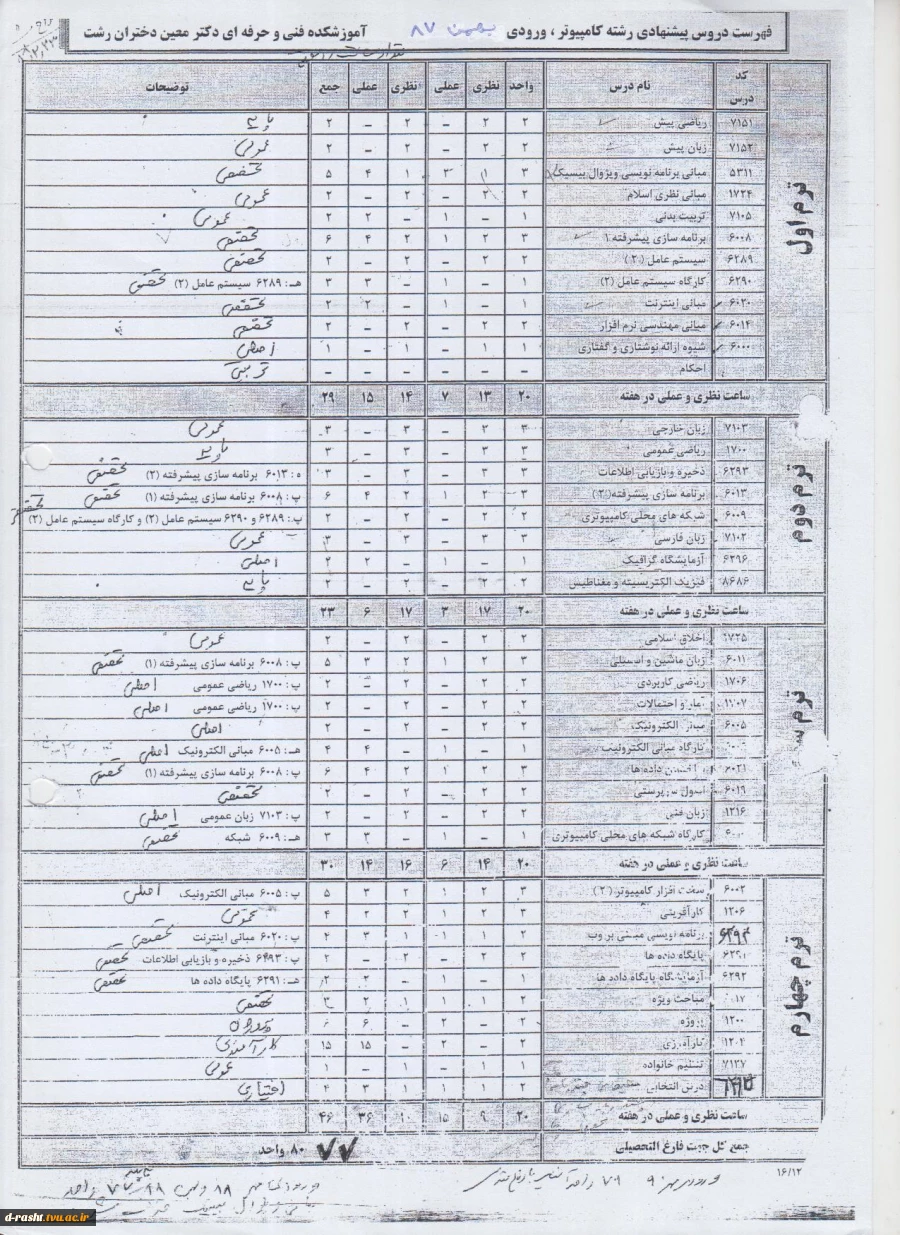 فهرست دروس پیشنهادی رشته کامپیوتر ، ورودی بهمن ۸۷ آموزشکده فنی و حرفه ای دکتر معین دختران رشت
کد درس نام درس واحد نظری عملی نظری عملی جمع توضیحات
ترم اول
۷۱۵۱ ریاضی پیش ۲ ۲ - ۲ - ۲ پایه
۷۱۵۲ زبان پیش ۲ ۲ - ۲ - ۲ عمومی
۵۳۱۱ مبانی برنامه نویسی ویژوال بیسیک ۳ ۳ ۱ ۴ ۵ تخصصی
۱۷۲۴ مبانی نظری اسلام ۲ ۲ - ۲ - ۲ عمومی
۷۱۰۵ تربیت بدنی ۱ - ۱ - ۲ ۲ عمومی
۶۰۰۸ برنامه سازی پیشرفته ۱ ۳ ۲ ۱ ۲ ۴ ۶ تخصصی
۶۲۸۹ سیستم عامل (۲) ۲ ۲ - ۲ - ۲ تخصصی
۶۲۹۰ کارگاه سیستم عامل (۲) ۱ - ۱ - ۳ ۳ هـ: ۶۲۸۹ سیستم عامل (۲) تخصصی
۶۰۲۰ مبانی اینترنت ۱ - ۱ - ۲ ۲ تخصصی
۶۰۱۴ مبانی مهندسی نرم افزار ۲ ۲ - ۲ - ۲ تخصصی
۶۰۰۰ شیوه ارائه نوشتاری و گفتاری ۱ ۱ - ۱ - ۱ اصلی
احکام - - - - - -
ساعت نظری و عملی در هفته ۲۰ ۱۳ ۷ ۱۴ ۱۵ ۲۹
ترم دوم
۷۱۰۳ زبان خارجی ۳ ۳ - ۳ - ۳ عمومی
۱۷۰۰ ریاضی عمومی ۳ ۳ - ۳ - ۳ پایه
۶۲۹۳ ذخیره و بازیابی اطلاعات ۳ ۳ - ۳ - ۳ ه: ۶۰۱۳ برنامه سازی پیشرفته (۲) تخصصی
۶۰۱۳ برنامه سازی پیشرفته (۲) ۳ ۲ ۱ ۲ ۴ ۶ پ: ۶۰۰۸ برنامه سازی پیشرفته (۱) تخصصی
۶۰۰۹ شبکه های محلی کامپیوتری ۲ ۲ - ۲ - ۲ پ: ۶۲۸۹ و ۶۲۹۰ سیستم عامل (۲) و کارگاه سیستم عامل (۲) تخصصی
۷۱۰۲ زبان فارسی ۳ ۳ - ۳ - ۳ عمومی
۶۲۹۶ آزمایشگاه گرافیک ۱ - ۱ - ۲ ۲ اصلی
۸۶۸۶ فیزیک الکتریسیته و مغناطیس ۲ ۲ - ۲ - ۲ پایه
ساعت نظری و عملی در هفته ۲۰ ۱۷ ۳ ۱۷ ۶ ۲۳
ترم
۱۷۲۵ اخلاق اسلامی ۲ ۲ - ۲ - ۲ عمومی
۶۰۱۱ زبان ماشین و اسمبلی ۳ ۲ ۱ ۲ ۳ ۵ پ: ۶۰۰۸ برنامه سازی پیشرفته (۱) تخصصی
۱۷۰۶ ریاضی کاربردی ۲ ۲ - ۲ - ۲ پ: ۱۷۰۰ ریاضی عمومی اصلی
آمار و احتمالات ۲ ۲ - ۲ - ۲ پ: ۱۷۰۰ ریاضی عمومی اصلی
۶۰۰۵ مبانی الکترونیک ۲ ۲ - ۲ - ۲ اصلی
کارگاه مبانی الکترونیک ۱ - ۱ - ۴ ۴ هـ: ۶۰۰۵ مبانی الکترونیک اصلی
۶۰۲۱ ساختمان داده ها ۳ ۲ ۱ ۲ ۴ ۶ پ: ۶۰۰۸ برنامه سازی پیشرفته (۱) تخصصی
۶۰۱۹ اصول سرپرستی ۲ ۲ - ۲ - ۲ تخصصی
۱۲۱۶ زبان فنی ۲ ۲ - ۲ - ۲ پ: ۷۱۰۳ زبان عمومی اصلی
کارگاه شبکه های محلی کامپیوتری ۱ - ۱ - ۳ ۳ هـ: ۶۰۰۹ شبکه تخصصی
ساعت نظری و عملی در هفته ۲۰ ۱۴ ۶ ۱۶ ۱۴ ۳۰
ترم چهارم
۶۰۰۲ سخت افزار کامپیوتر (۲) ۳ ۲ ۱ ۲ ۳ ۵ پ: ۶۰۰۵ مبانی الکترونیک اصلی
۱۲۰۶ کارآفرینی ۳ ۲ ۱ ۲ ۲ ۴ عمومی
برنامه نویسی مبتنی بر وب ۲ ۱ ۱ ۱ ۳ ۴ پ: ۶۰۲۰ مبانی اینترنت تخصصی
۶۲۹۱ پایگاه داده ها ۲ ۲ - ۲ - ۲ پ: ۶۲۹۳ ذخیره و بازیابی اطلاعات تخصصی
۶۲۹۲ آزمایشگاه پایگاه داده ها ۱ - ۱ - ۲ ۲ هـ: ۶۲۹۱ پایگاه داده ها تخصصی
مباحث ویژه ۲ ۱ ۱ ۱ ۲ ۳ تخصصی
۱۲۰۰ پروژه ۲ - ۲ - ۶ ۶ پروژه
۱۲۰۴ کارآموزی ۲ - ۲ - ۱۵ ۱۵ کارآموزی
۷۱۲۷ تنظیم خانواده ۱ ۱ - ۱ - ۱ عمومی
درس انتخابی ۲ ۱ ۱ ۱ ۳ ۴ اختیاری
ساعت نظری و عملی در هفته ۲۰ ۹ ۱۵ ۱۰ ۳۶ ۴۶
جمع کل جهت فارغ التحصیلی ۷۷ ۸۰ واحد
۱۶/۱۲
d-rasht.tvu.ac.ir